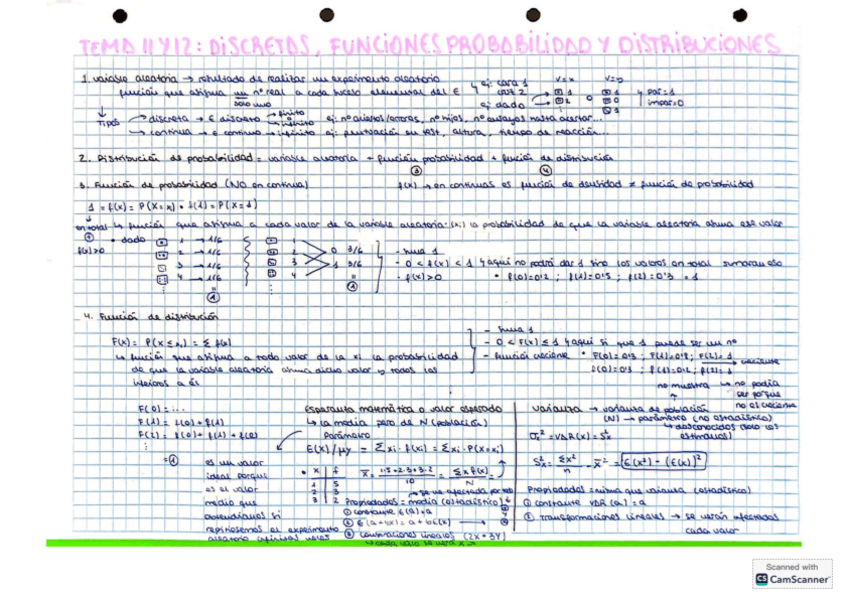 TEMA 11 Y 12: DISCRETAS, FUNCIONES PROBABILIDAD Y DISTRIBUCIONES
1. Variable aleatoria → resultado de realizar un experimento aleatorio
función que asigna un nº real a cada suceso elemental del E
solo uno
ej: cara 1
cruz 2
ej: dado
V=x
V=y
par=1
impar=0
Tipos
discreta → E discreto → finito
infinito
ej: nº aciertos/errores, nº hijos, nº ensayos hasta acertar...
continua → E continuo → infinito ej: puntuación en test, altura, tiempo de reacción...
2. Distribución de probabilidad = variable aleatoria + función probabilidad + función de distribución
③ ④
3. Función de probabilidad (NO en continua) f(x) → en continuas es función de densidad ≠ función de probabilidad
1 = f(x) = P(X=xi) • f(1) = P(X=1)
en total ↳ función que asigna a cada valor de la variable aleatoria (xi) la probabilidad de que la variable aleatoria asuma ese valor
f(x)>0
• dado
1 → 1/6
2 → 1/6
3 → 1/6
4 → 1/6
1
2
3
4
0 3/6
1 3/6
- suma 1
- 0 < f(x) < 1 ↳ aquí no podrá dar 1 sino los valores en total sumarán eso
- f(x)>0 • f(0)=0'2 ; f(1)=0'5 ; f(2)=0'3 = 1
4. Función de distribución
F(x) = P(X ≤ xi) = Σ f(x)
↳ función que asigna a todo valor de la xi la probabilidad
de que la variable aleatoria asuma dicho valor y todos los
inferiores a él
- suma 1
- 0 < F(x) ≤ 1 ↳ aquí si que 1 puede ser un nº
- función creciente • F(0)=0'3 ; F(1)=0'8 ; F(2)=1 → creciente
no muestra
↳ no podía
ser porque
no es creciente
F(0) = ...
F(1) = f(0) + f(1)
F(2) = f(0) + f(1) + f(2)
=①
es un valor
ideal porque
es el valor
medio que
obtendríamos si
repitiésemos el experimento
aleatorio infinitas veces
Esperanza matemática o valor esperado
↳ la media pero de N (población)
parámetro
E(X)/μx = Σxi · f(xi) = Σxi · P(X=xi)
x f
1 5
2 3
3 2
x̄ = 1·5+2·3+3·2 / 10 = Σx f(x) / N
→ se ve afectada por todo
Propiedades = media (estadístico)
① constante E(a)=a
② E(a+bx) = a + bE(x)
③ combinaciones lineales (2X+3Y)
Varianza → varianza de población
(N) → parámetro (no estadístico)
↳ desconocidos (solo los
estimamos)
σx² = VAR(X) = Sx²
Sx² = Σx²/n - x̄² = E(x²) - (E(x))²
Propiedades = misma que varianza (estadístico)
① constante VAR(a) = a
② Transformaciones lineales → se verán afectadas
cada valor
Scanned with
CS CamScanner